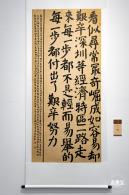 看似尋常最奇崛成如容易却
艱辛深圳等經濟特區一路走
來每一步都不是輕而易舉的
每一步都付出了艱辛努力